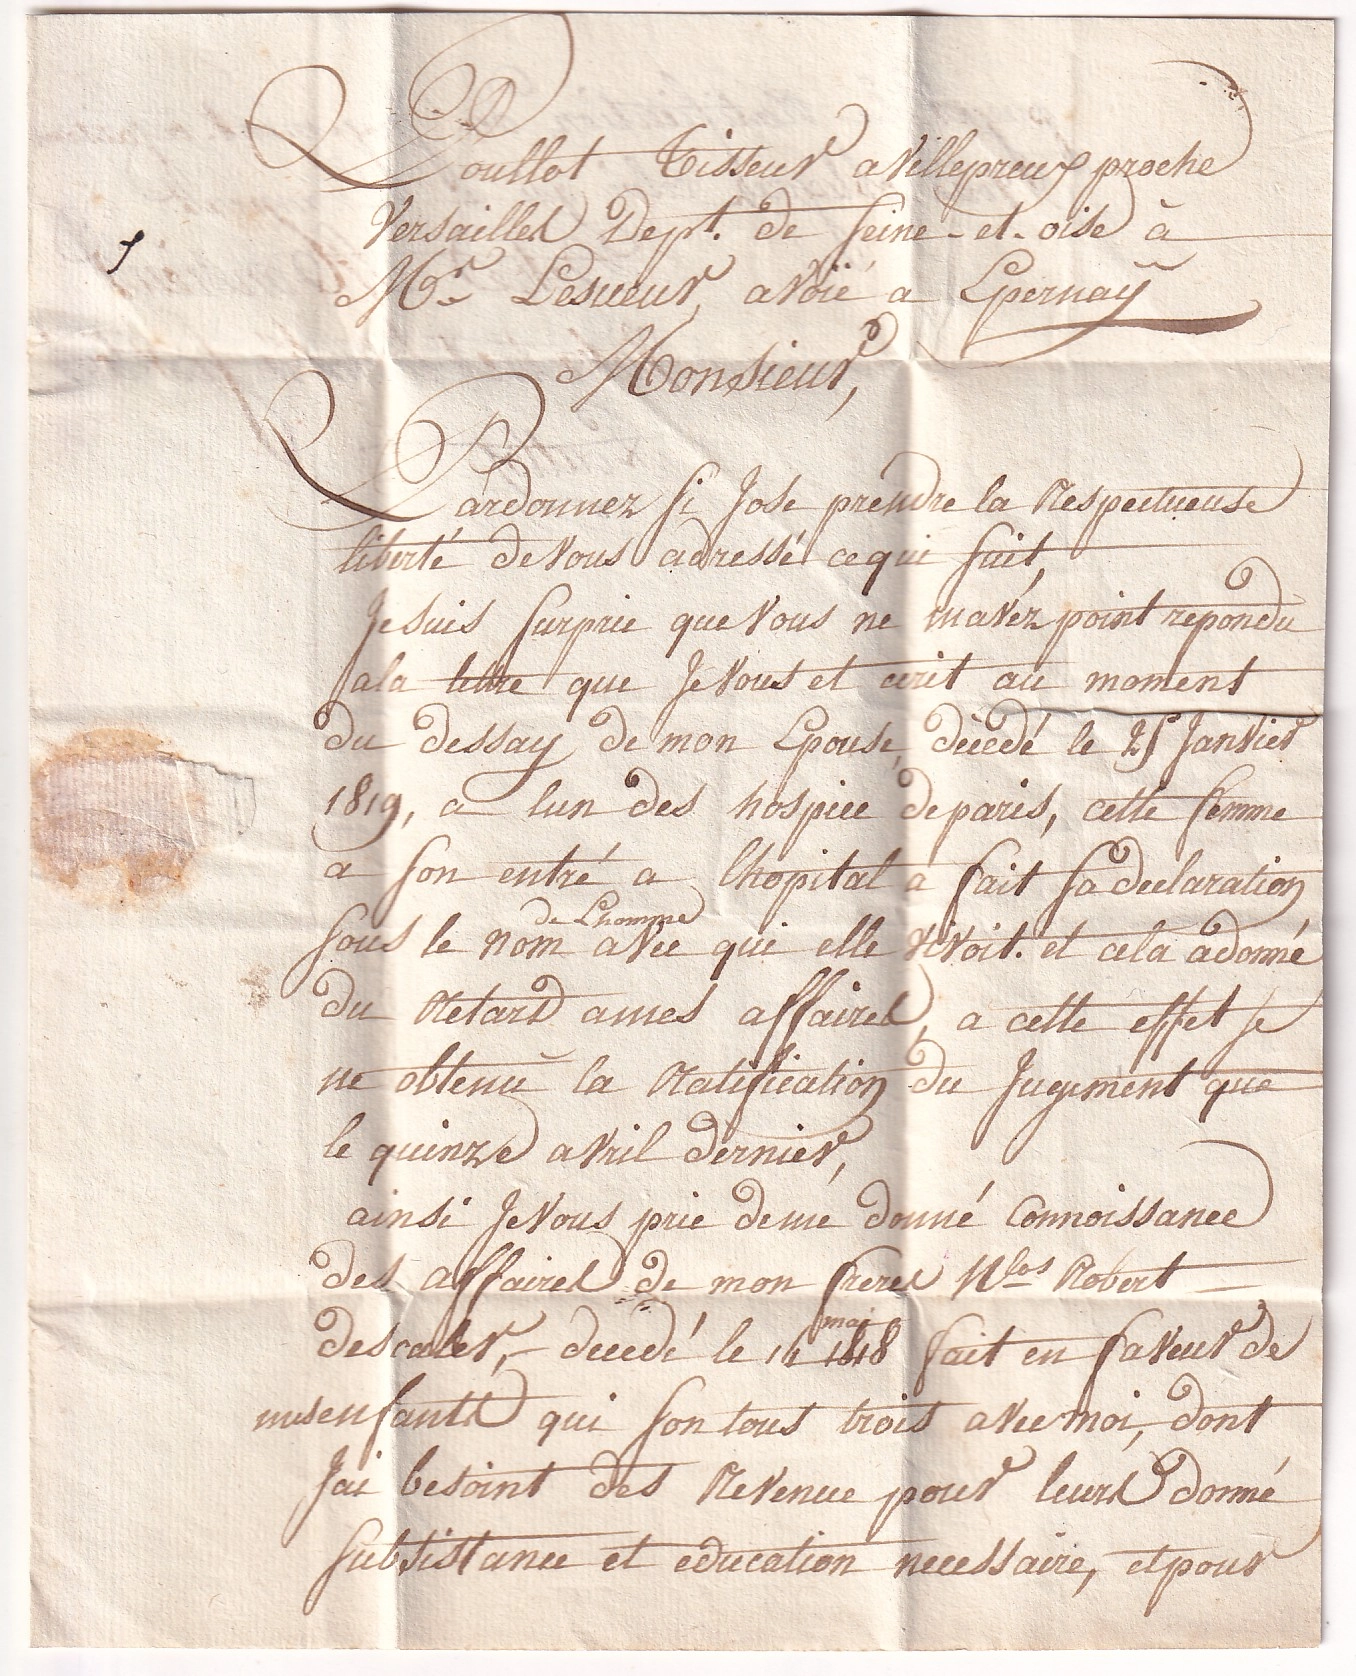 Poullot Tisseur a villepreux proche
Versailles Dept. de Seine-et-oise à
Mr Lesueur, avoïé a Epernaÿ
Monsieur,
Pardonnez si Jose prendre la Respectueuse
liberté de vous adressé ce qui suit,
Je suis surprie que vous ne mavéz point repondu
a la lettre que Je vous et ecrit au moment
du dessay de mon Epouse, décedé le 25 Janvier
1819, a lun des hospice de paris, cette femme
a son entré a lhopital a fait sa declaration
de Lhomme
sous le nom avec qui elle vivoit. et cela a donné
du Retard a mes affaires, a cette effet Je
ne obtenu la Ratification du Jugement que
le quinze avril dernier,
ainsi Je vous prie de me donné Connoissance
des affaires de mon freres Nlas Robert
decedé le 14 1818 fait en faveur de
mai
mes enfants qui son tous trois avec moi, dont
Jai besoint des Revenue pour leurs donné
subsistance et education necessaire, et pour